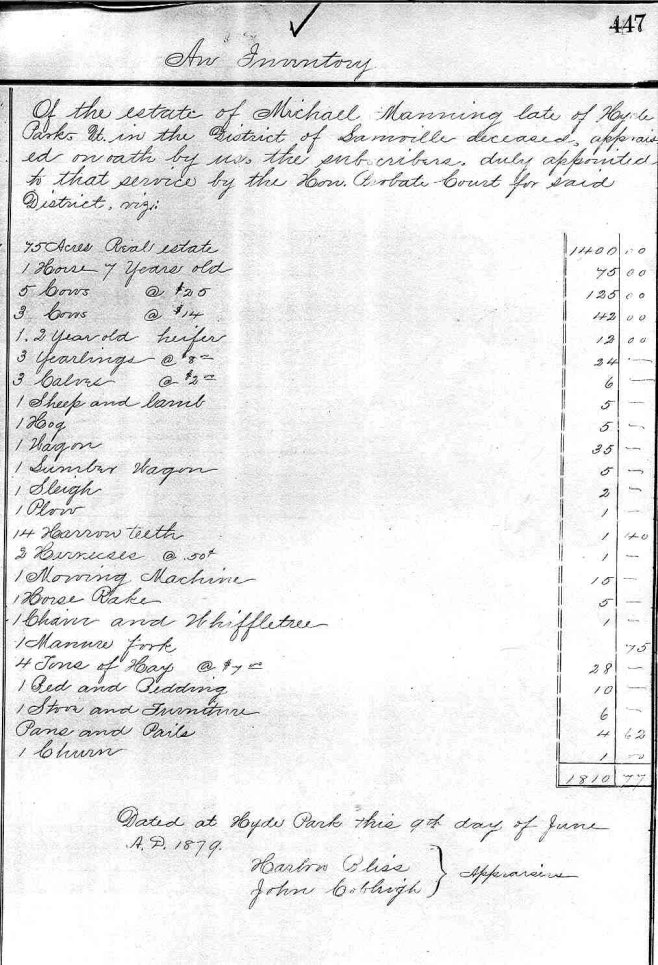 447
An Inventory
Of the estate of Michael Manning late of Hyde
Park Vt. in the District of Lamoille deceased, apprais
ed on oath by us, the subscribers, duly appointed
to that service by the Hon. Probate Court for said
District, viz:
75 Acres Real estate 1400 00
1 Horse 7 Years old 75 00
5 Cows @ $25 125 00
3 Cows @ $14 42 00
1. 2 Year old heifer 12 00
3 Yearlings @ $8 = 24 —
3 Calves @ $2 = 6 —
1 Sheep and lamb 5 —
1 Hog 5 —
1 Wagon 35 —
1 Lumber Wagon 5 —
1 Sleigh 2 —
1 Plow 1 —
14 Harrow teeth 1 40
2 Harnesses @ .50¢ 1 —
1 Mowing Machine 15 —
1 Horse Rake 5 —
1 Chain and Whiffletree 1 —
1 Manure fork 75
4 Tons of Hay @ $7 = 28 —
1 Bed and Bedding 10 —
1 Stove and Furniture 6 —
Pans and Pails 4 62
1 Churn 1 00
1810 77
Dated at Hyde Park this 9th day of June
A.D. 1879.
Harlow Bliss
John Cobleigh } Appraisers